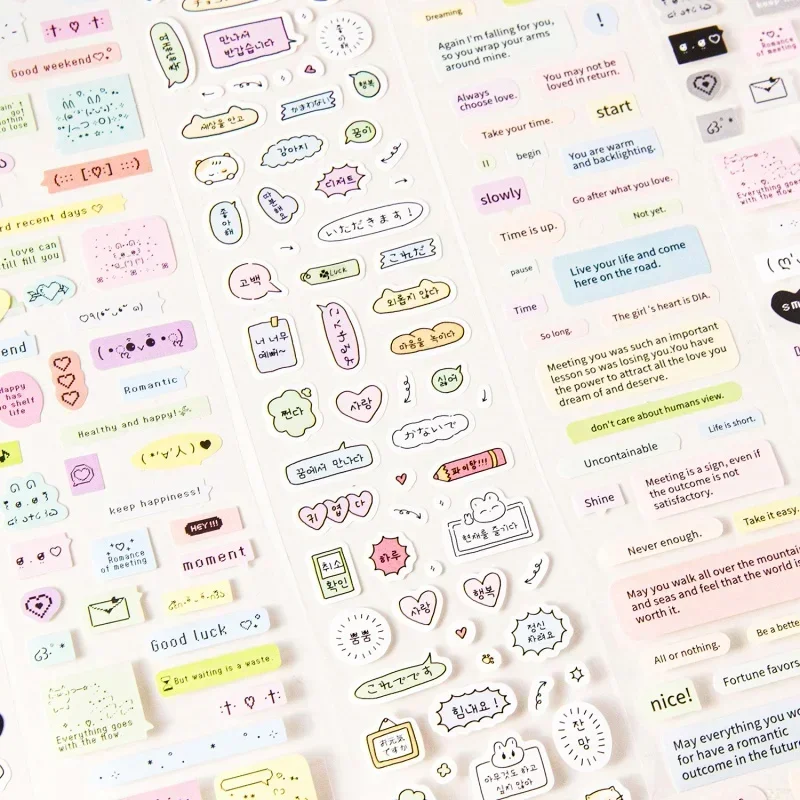 Good weekend♡
ain't
go!
nothin
to lose
(::: [:♡:] :::)
rd recent days ♡
love can
till fill you
end
Romantic
Happy
has
no shelf
life
Healthy and happy!
keep happiness!
HEY!!!
Romance
of meeting
moment
Good luck ♡
But waiting is a waste.
Everything goes
with the flow
만나서
반갑습니다
좋
아
해
행복
かまわない
세상을 안고
꿈이
강아지
디저트
좋
아
해
따
분
해
요
いただきます!
고백
Luck
これだ
외롭지 않다
너 너무
예뻐~
마음을 녹이다
쩐다
사랑
싫어
かないで
꿈에서 만나다
파이팅!!!
귀엽다
현재를 즐기다
취소
확인
하루
사랑
행복
뿅뿅
정신
차려요
これでです
힘내요!
お元気
ですか
잔
망
아무것도 하고
싶지 않아
Dreaming
!
Again I'm falling for you,
so you wrap your arms
around mine.
Always
choose love.
You may not be
loved in return.
Take your time.
start
begin
You are warm
and backlighting.
slowly
Go after what you love.
Not yet.
Time is up.
pause
Live your life and come
here on the road.
Time
The girl's heart is DIA.
So long.
Meeting you was such an important
lesson so was losing you.You have
the power to attract all the love you
dream of and deserve.
don't care about humans view.
Life is short.
Uncontainable
Shine
Meeting is a sign, even if
the outcome is not
satisfactory.
Never enough.
Take it easy.
May you walk all over the mountai
and seas and feel that the world is
worth it.
All or nothing.
Be a bette
nice!
Fortune favors
May everything you wo
for have a romantic
outcome in the future
Romance
of meeting
Everything goes
with the flow
sm